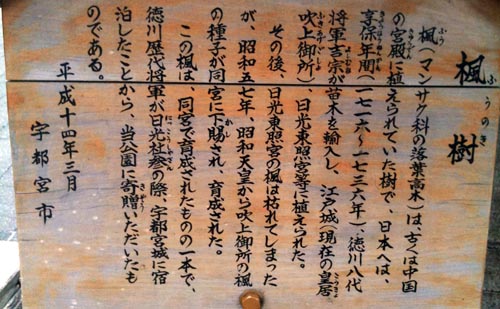 楓樹
ふうのき
楓（マンサク科の落葉高木）は、古くは中国
の宮殿に植えられていた樹で、日本へは、
享保年間（一七一六～一七三六年）、徳川八代
将軍吉宗が苗木を輸入し、江戸城（現在の皇居
吹上御所）、日光東照宮等に植えられた。
その後、日光東照宮の楓は枯れてしまった
が、昭和五七年、昭和天皇から吹上御所の楓
の種子が同宮に下賜され、育成された。
この楓は、同宮で育成されたものの一本で、
徳川歴代将軍が日光社参の際、宇都宮城に宿
泊したことから、当公園に寄贈いただいたも
のである。
平成十四年三月
宇都宮市